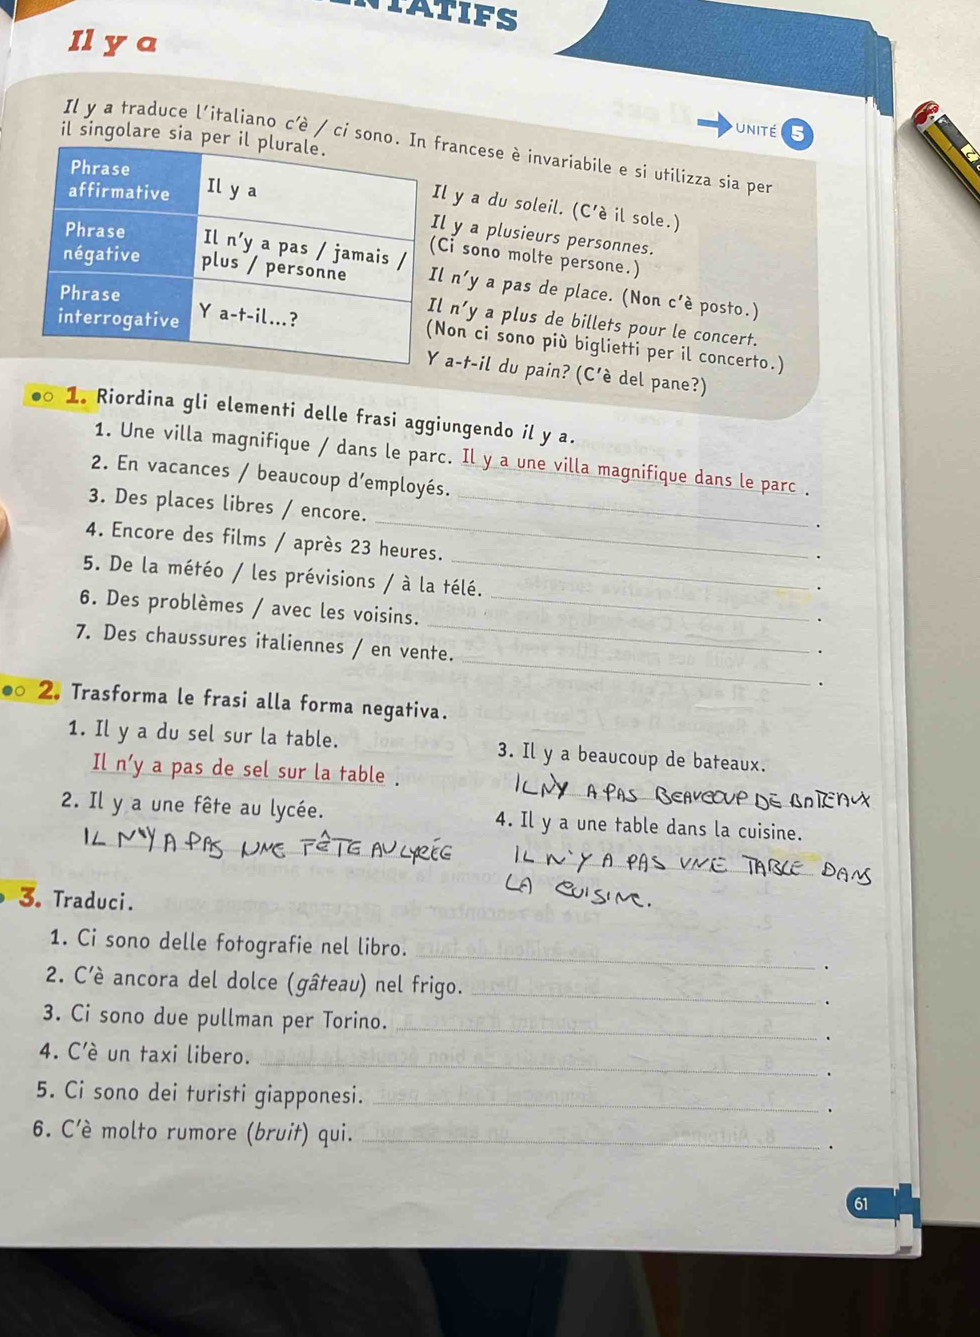 NTATIFS
Il y a
UNITÉ 5
Il y a traduce l'italiano c'è / ci sono. In francese è invariabile e si utilizza sia per
il singolare sia per il plurale.
Phrase
affirmative
Il y a
Phrase
négative
Il n'y a pas / jamais /
plus / personne
Phrase
interrogative
Y a-t-il...?
Il y a du soleil. (C'è il sole.)
Il y a plusieurs personnes.
(Ci sono molte persone.)
Il n'y a pas de place. (Non c'è posto.)
Il n'y a plus de billets pour le concert.
(Non ci sono più biglietti per il concerto.)
Y a-t-il du pain? (C'è del pane?)
1. Riordina gli elementi delle frasi aggiungendo il y a.
1. Une villa magnifique / dans le parc. Il y a une villa magnifique dans le parc .
2. En vacances / beaucoup d'employés. .
3. Des places libres / encore. .
4. Encore des films / après 23 heures. .
5. De la météo / les prévisions / à la télé. .
6. Des problèmes / avec les voisins. .
7. Des chaussures italiennes / en vente. .
2. Trasforma le frasi alla forma negativa.
1. Il y a du sel sur la table.
Il n'y a pas de sel sur la table .
2. Il y a une fête au lycée.
IL N'Y A PAS UNE FÊTE AU LYCÉE
3. Il y a beaucoup de bateaux.
IL NY A PAS BEAUCOUP DE BATEAUX
4. Il y a une table dans la cuisine.
IL N'Y A PAS UNE TABLE DANS
LA CUISINE.
3. Traduci.
1. Ci sono delle fotografie nel libro. .
2. C'è ancora del dolce (gâteau) nel frigo. .
3. Ci sono due pullman per Torino. .
4. C'è un taxi libero. .
5. Ci sono dei turisti giapponesi. .
6. C'è molto rumore (bruit) qui. .
61